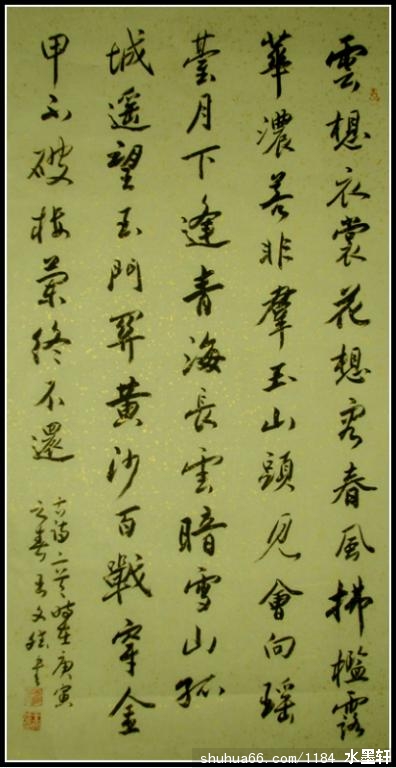 雲想衣裳花想容春風拂檻露
華濃若非羣玉山頭見會向瑤
臺月下逢青海長雲暗雪山孤
城遥望玉門関黄沙百戰穿金
甲不破楼蘭終不還
古詩二首時在庚寅
之春王文書
shuhua66.com/1184 水墨轩